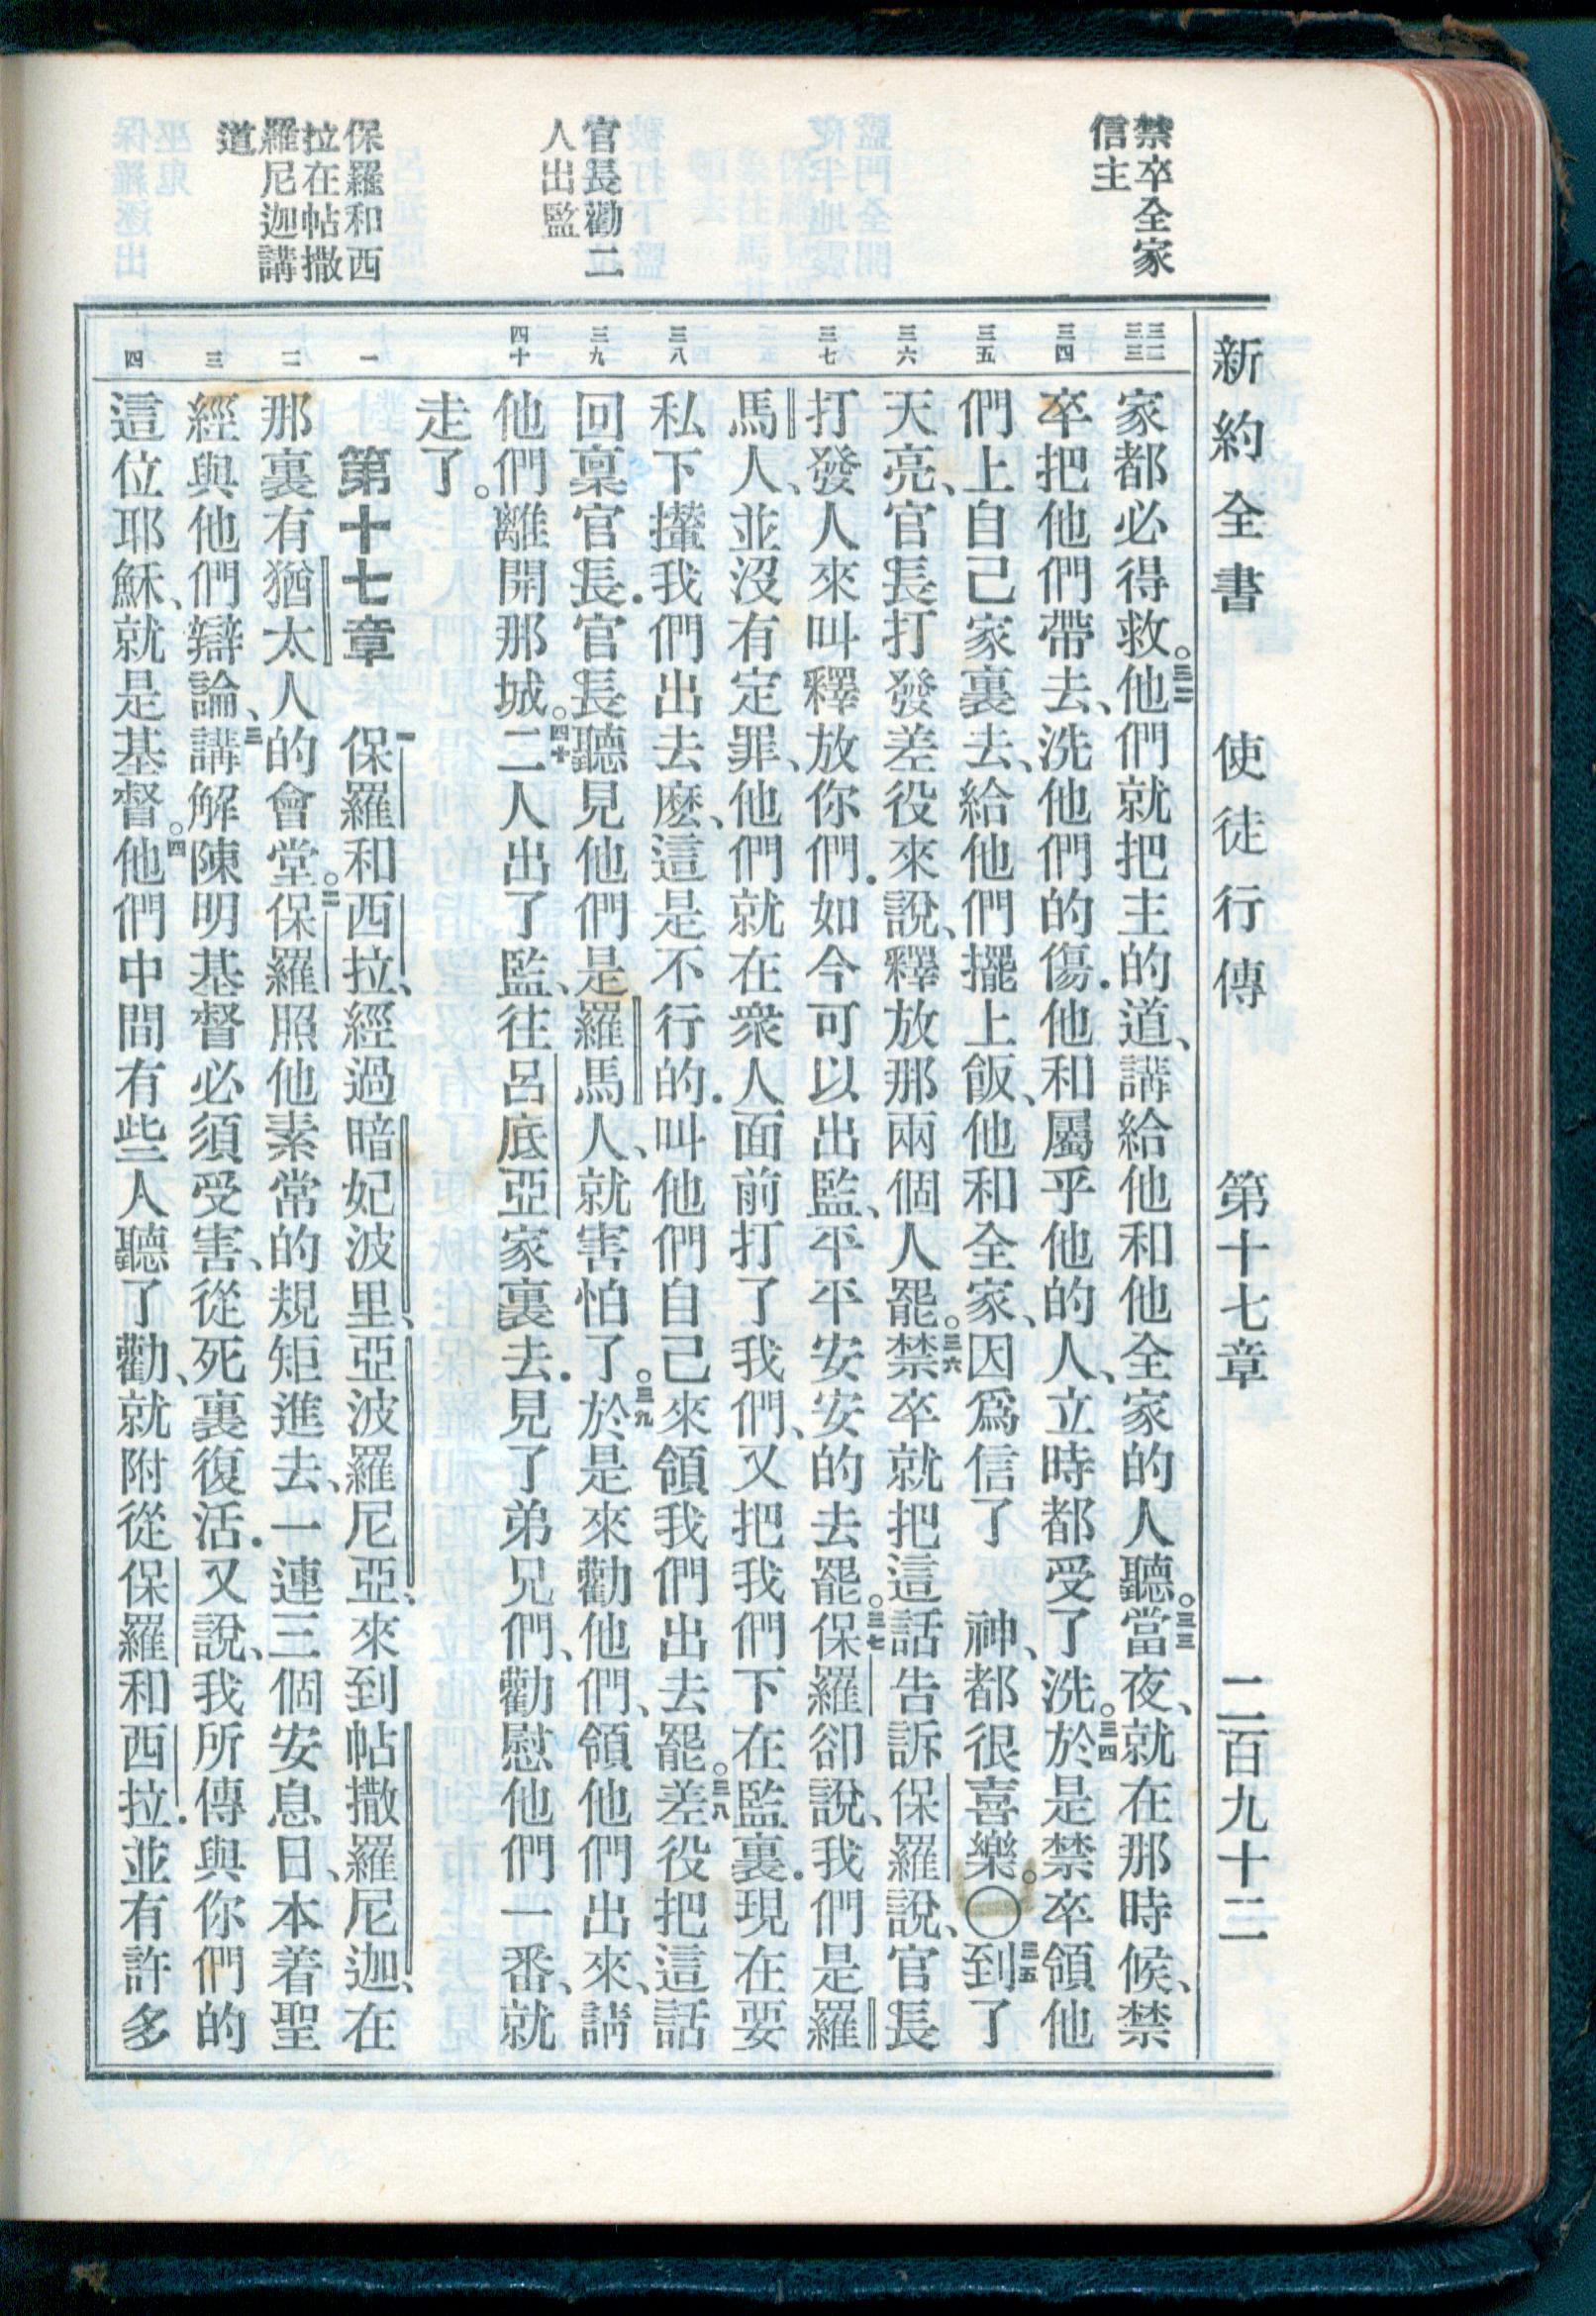 新約全書 使徒行傳 第十七章 二百九十二
禁卒全家
信主
官長勸二
人出監
保羅和西
拉在帖撒
羅尼迦講
道
三二 三三
家都必得救。三二他們就把主的道、講給他和他全家的人聽。三三當夜、就在那時候、禁
三四
卒把他們帶去、洗他們的傷．他和屬乎他的人、立時都受了洗。三四於是禁卒領他
三五
們上自己家裏去、給他們擺上飯、他和全家、因爲信了 神、都很喜樂。〇三五到了
三六
天亮、官長打發差役來說、釋放那兩個人罷。三六禁卒就把這話告訴保羅說、官長
三七
打發人來叫釋放你們．如今可以出監、平平安安的去罷。三七保羅卻說、我們是羅
馬人、並沒有定罪、他們就在衆人面前打了我們、又把我們下在監裏．現在要
三八
私下攆我們出去麼、這是不行的．叫他們自己來領我們出去罷。三八差役把這話
三九
回稟官長．官長聽見他們是羅馬人、就害怕了。三九於是來勸他們、領他們出來、請
四十
他們離開那城。四十二人出了監、往呂底亞家裏去．見了弟兄們、勸慰他們一番、就
走了。
一
第十七章 一保羅和西拉、經過暗妃波里、亞波羅尼亞、來到帖撒羅尼迦、在
二
那裏有猶太人的會堂。二保羅照他素常的規矩進去、一連三個安息日、本着聖
三
經與他們辯論、三講解陳明基督必須受害、從死裏復活．又說、我所傳與你們的
四
這位耶穌、就是基督。四他們中間有些人聽了勸、就附從保羅和西拉．並有許多